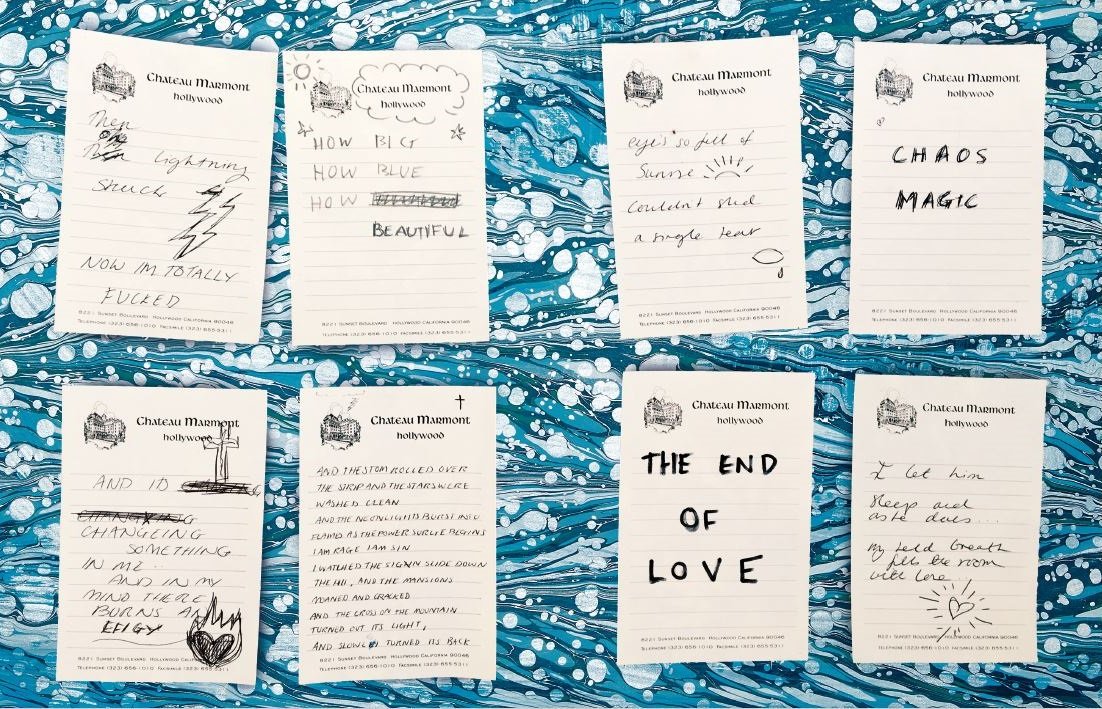 Chateau Marmont
hollywood
Then
lightning
struck
NOW IM TOTALLY
FUCKED
8221 Sunset Boulevard Hollywood California 90046
Telephone (323) 656-1010 Facsimile (323) 655-5311
Chateau Marmont
hollywood
HOW BIG
HOW BLUE
HOW
BEAUTIFUL
8221 Sunset Boulevard Hollywood California 90046
Telephone (323) 656-1010 Facsimile (323) 655-5311
Chateau Marmont
hollywood
eye's so full of
Sunrise
Couldn't shed
a single tear
8221 Sunset Boulevard Hollywood California 90046
Telephone (323) 656-1010 Facsimile (323) 655-5311
Chateau Marmont
hollywood
CHAOS
MAGIC
8221 Sunset Boulevard Hollywood California 90046
Telephone (323) 656-1010 Facsimile (323) 655-5311
Chateau Marmont
hollywood
AND ID
CHANGEING
SOMETHING
IN ME..
AND IN MY
MIND THERE
BURNS AN
EFIGY
8221 Sunset Boulevard Hollywood California 90046
Telephone (323) 656-1010 Facsimile (323) 655-5311
Chateau Marmont
hollywood
AND THE STOM ROLLED OVER
THE STRIP AND THE STARS WERE
WASHED CLEAN
AND THE NEON LIGHTS BURST INTO
FLAMES AS THE POWER SURGE BEGINS
I AM RAGE I AM SIN
I WATCHED THE SIGN IN SLIDE DOWN
THE HILL, AND THE MANSIONS
MOANED AND CRACKED
AND THE CROSS ON THE MOUNTAIN
TURNED OUT ITS LIGHT,
AND SLOWLEY TURNED ITS BACK
8221 Sunset Boulevard Hollywood California 90046
Telephone (323) 656-1010 Facsimile (323) 655-5311
Chateau Marmont
hollywood
THE END
OF
LOVE
8221 Sunset Boulevard Hollywood California 90046
Telephone (323) 656-1010 Facsimile (323) 655-5311
Chateau Marmont
hollywood
I let him
sleep and
as he does....
my held breath
fills the room
with love...
8221 Sunset Boulevard Hollywood California 90046
Telephone (323) 656-1010 Facsimile (323) 655-5311